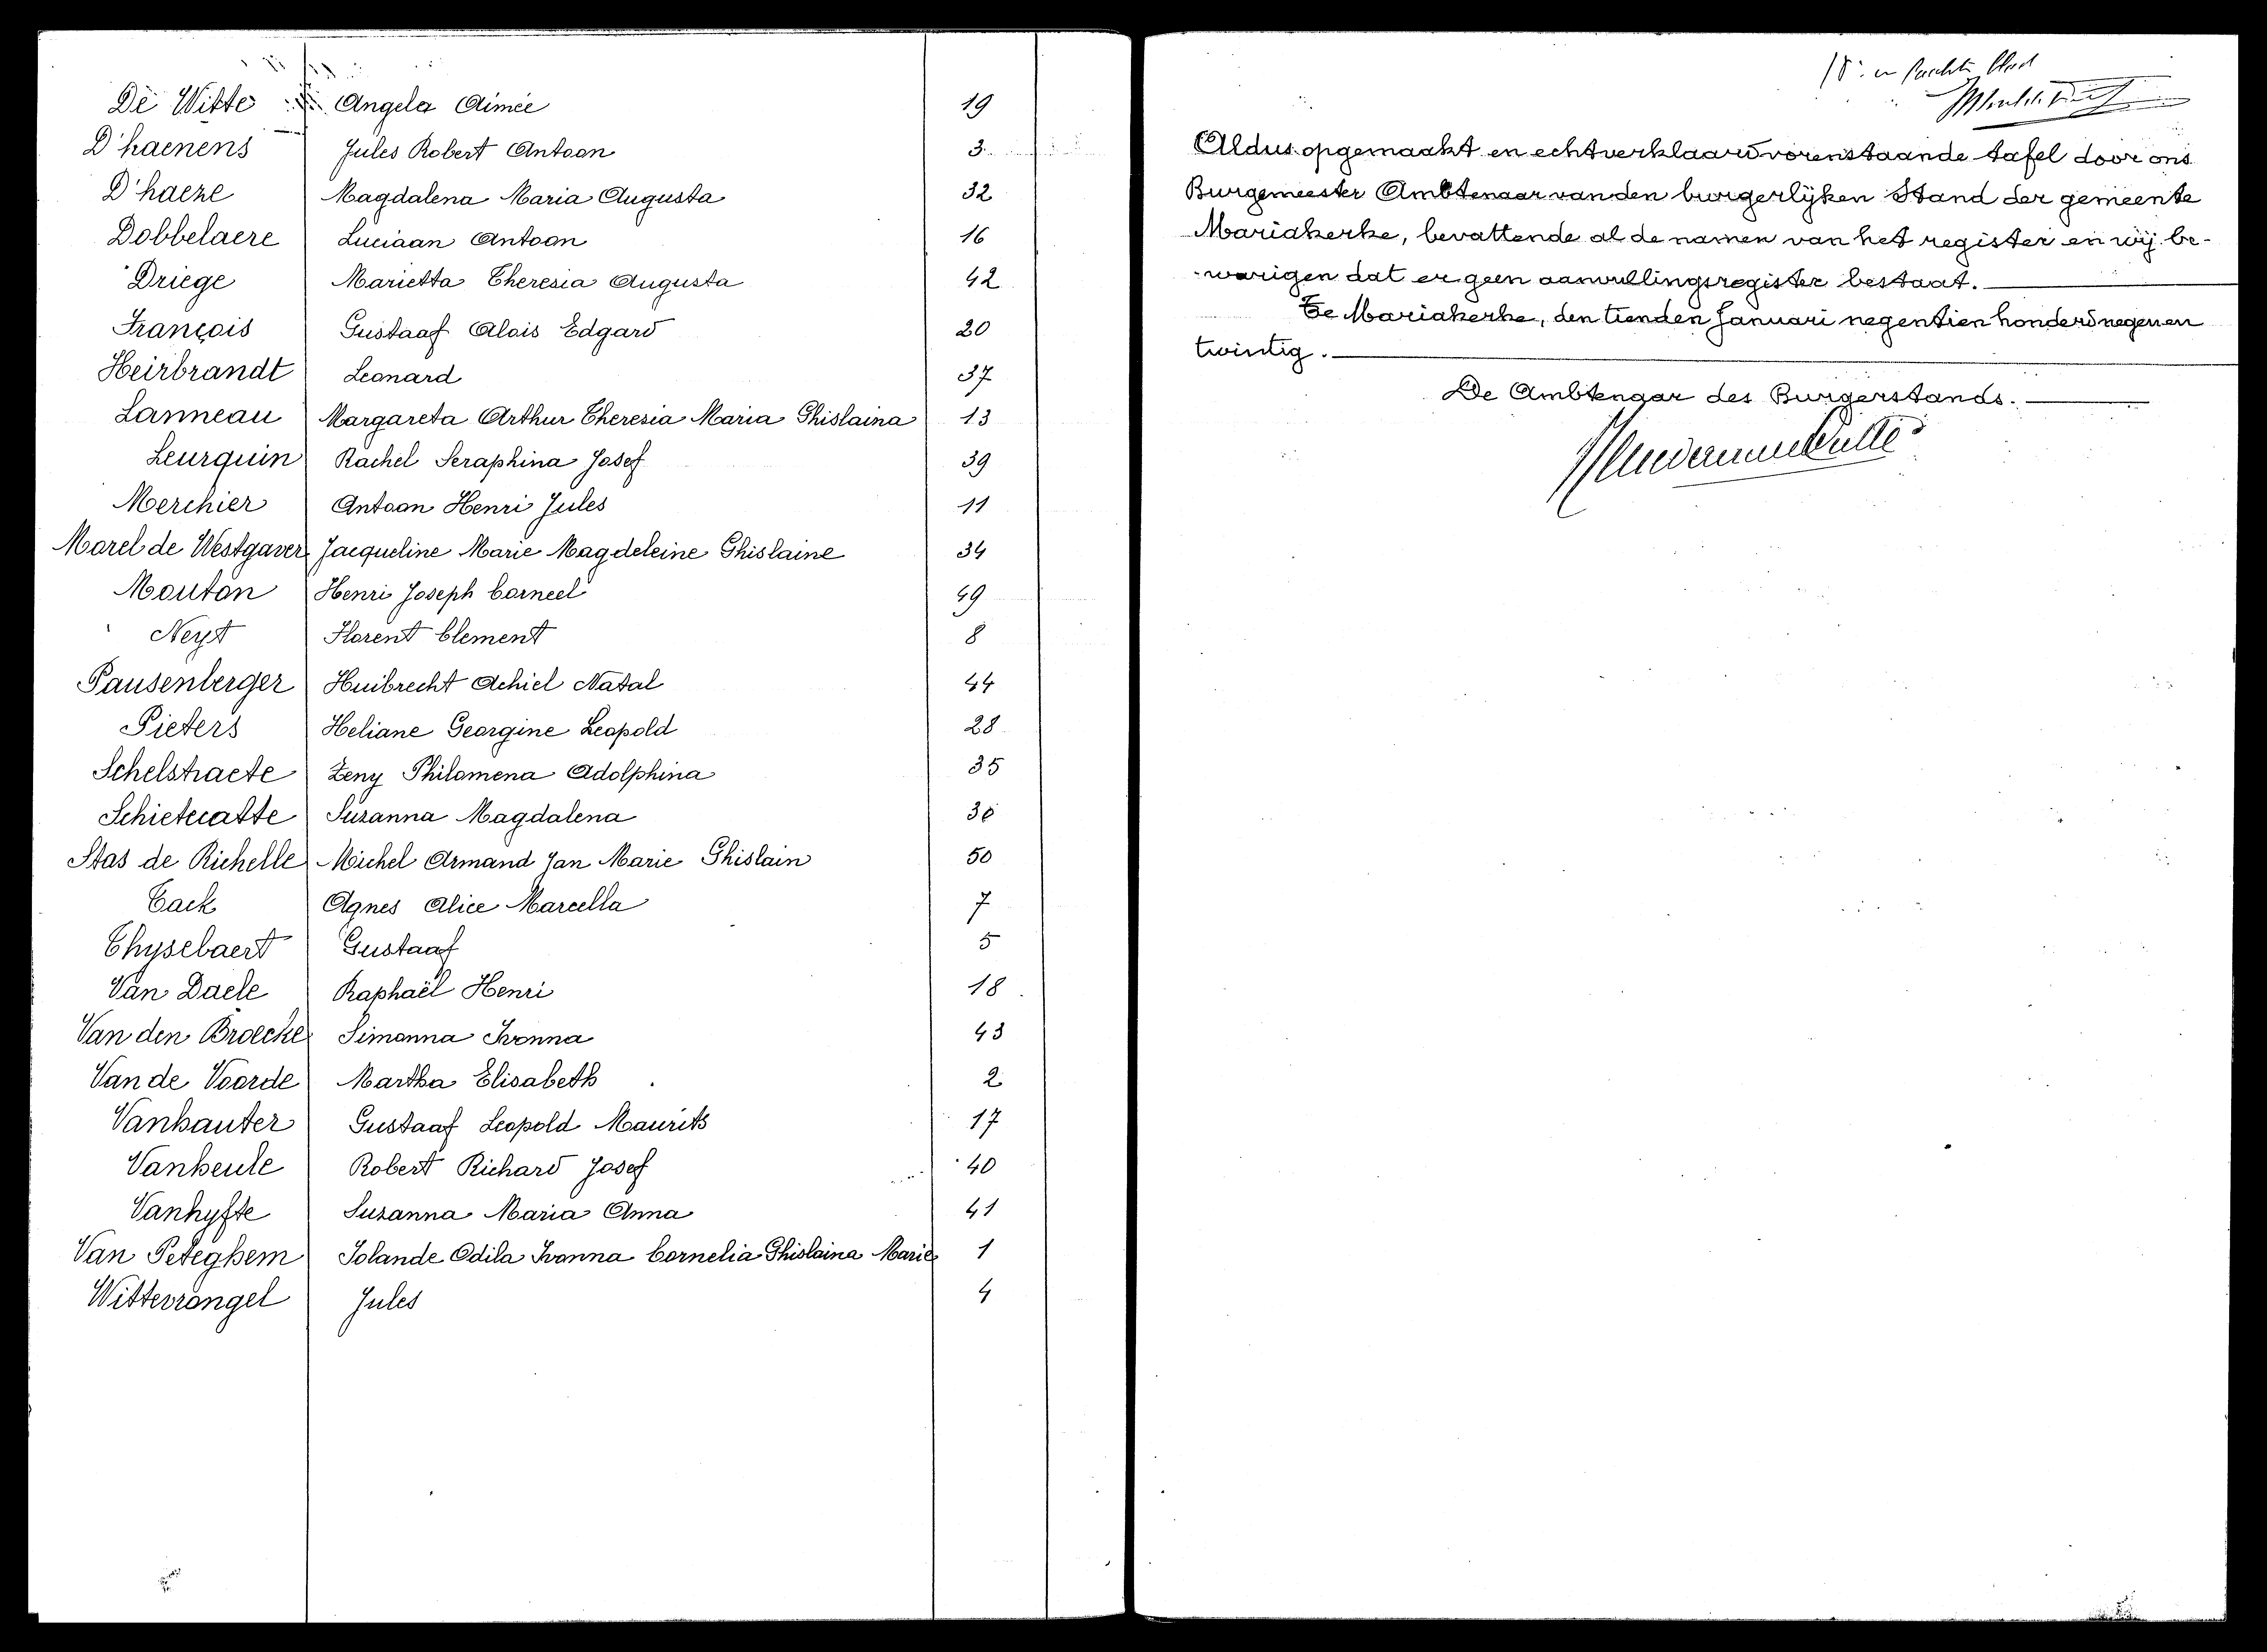 De Witte Angela Aimée 19
D'haenens Jules Robert Antoon 3
D'haeze Magdalena Maria Augusta 32
Dobbelaere Luciaan Antoon 16
Driege Marietta Theresia Augusta 42
François Gustaaf Alois Edgard 20
Heirbrandt Leonard 37
Lanneau Margareta Arthur Theresia Maria Ghislaina 13
Leurquin Rachel Seraphina Josef 39
Merchier Antoon Henri Jules 11
Morel de Westgaver Jacqueline Marie Magdeleine Ghislaine 34
Mouton Henri Joseph Corneel 49
Neyt Florent Clement 8
Pausenberger Huibrecht Achiel Natal 44
Pieters Heliane Georgine Leopold 28
Schelstraete Zeny Philomena Adolphina 35
Schietecatte Suzanna Magdalena 36
Stas de Richelle Michel Armand Jan Marie Ghislain 50
Tack Agnes Alice Marcella 7
Thysebaert Gustaaf 5
Van Daele Raphaël Henri 18
Van den Broecke Simonna Ivonna 43
Van de Voorde Martha Elisabeth 2
Vanhauter Gustaaf Leopold Maurits 17
Vankeule Robert Richard Josef 40
Vanhyfte Suzanna Maria Anna 41
Van Peteghem Iolande Odila Ivonna Cornelia Ghislaina Marie 1
Wittevrongel Jules 4
Aldus opgemaakt en echtverklaard vorenstaande tafel door ons
Burgemeester Ambtenaar van den burgerlijken Stand der gemeente
Mariakerke, bevattende al de namen van het register en wij be-
varigen dat er geen aanvullingsregister bestaat.
Te Mariakerke, den tienden Januari negentien honderd negen en
twintig.
De Ambtenaar des Burgerstands.